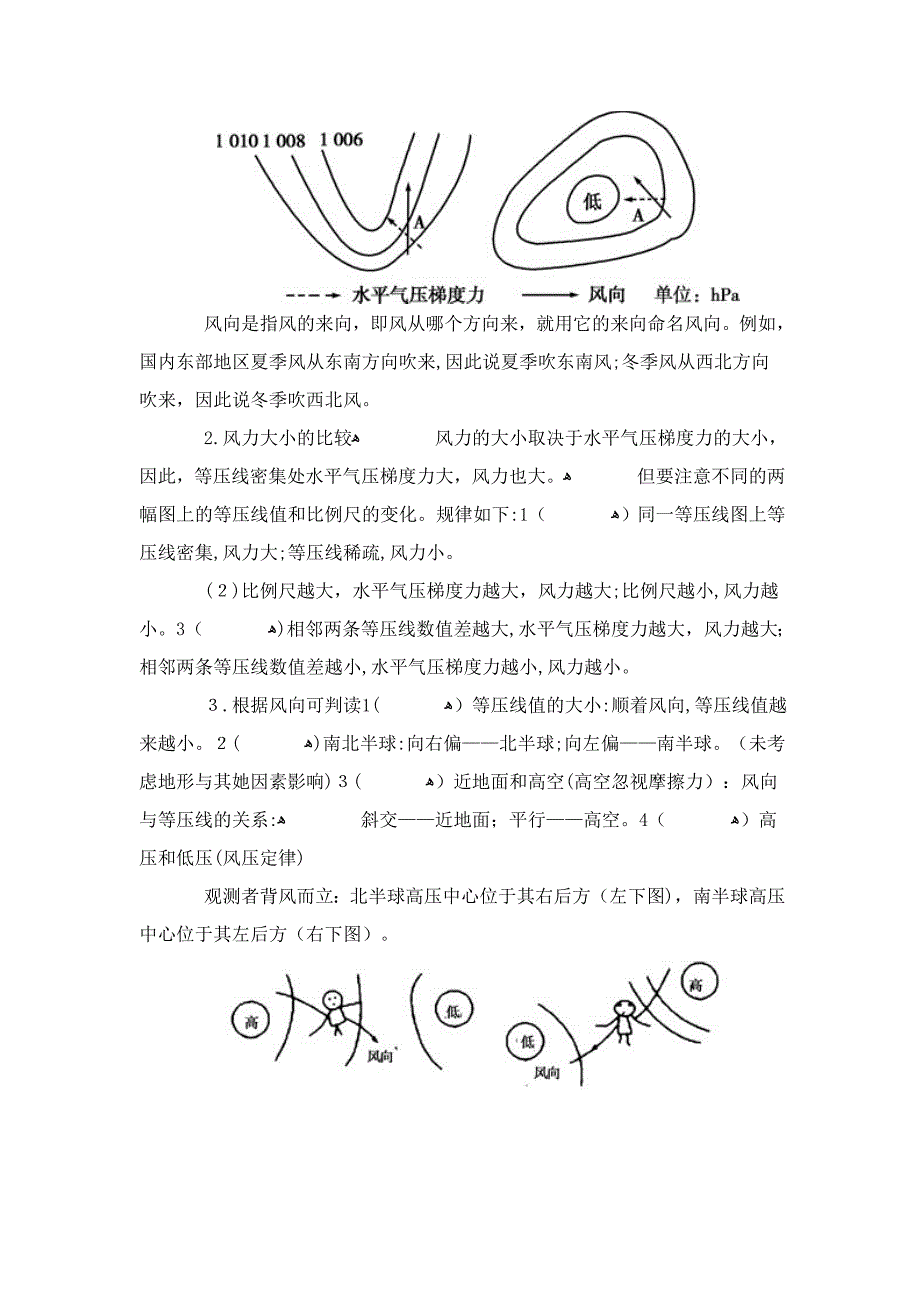 1 010 1 008 1 006
A
低
A
水平气压梯度力 风向 单位：hPa
风向是指风的来向，即风从哪个方向来，就用它的来向命名风向。例如，
国内东部地区夏季风从东南方向吹来,因此说夏季吹东南风;冬季风从西北方向
吹来，因此说冬季吹西北风。
2.风力大小的比较ﻫ 风力的大小取决于水平气压梯度力的大小，
因此，等压线密集处水平气压梯度力大，风力也大。ﻫ 但要注意不同的两
幅图上的等压线值和比例尺的变化。规律如下:1（ ﻫ）同一等压线图上等
压线密集,风力大;等压线稀疏,风力小。
(２)比例尺越大，水平气压梯度力越大，风力越大;比例尺越小,风力越
小。3（ ﻫ)相邻两条等压线数值差越大,水平气压梯度力越大，风力越大;
相邻两条等压线数值差越小,水平气压梯度力越小,风力越小。
３.根据风向可判读1( ﻫ）等压线值的大小:顺着风向,等压线值越
来越小。２( ﻫ)南北半球:向右偏——北半球;向左偏——南半球。（未考
虑地形与其她因素影响)３( ﻫ）近地面和高空(高空忽视摩擦力）：风向
与等压线的关系:ﻫ 斜交——近地面；平行——高空。4（ ﻫ）高
压和低压(风压定律)
观测者背风而立：北半球高压中心位于其右后方（左下图)，南半球高压
中心位于其左后方（右下图）。
高 风向 低
低 风向 高